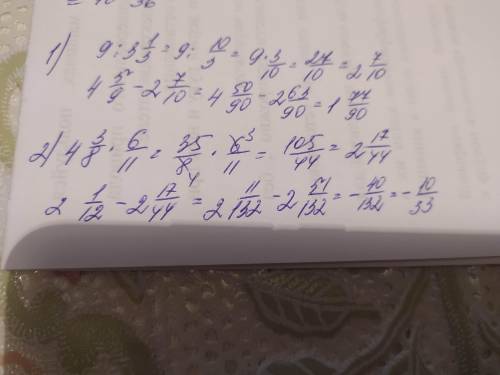 1) 9 : 3 1/3 = 9 : 10/3 = 9 · 3/10 = 27/10 = 2 7/10
4 5/9 - 2 7/10 = 4 50/90 - 2 63/90 = 1 77/90
2) 4 3/8 · 6/11 = 35/8 4 · 6 3/11 = 105/44 = 2 17/44
2 1/12 - 2 17/44 = 2 11/132 - 2 51/132 = - 40/132 = - 10/33